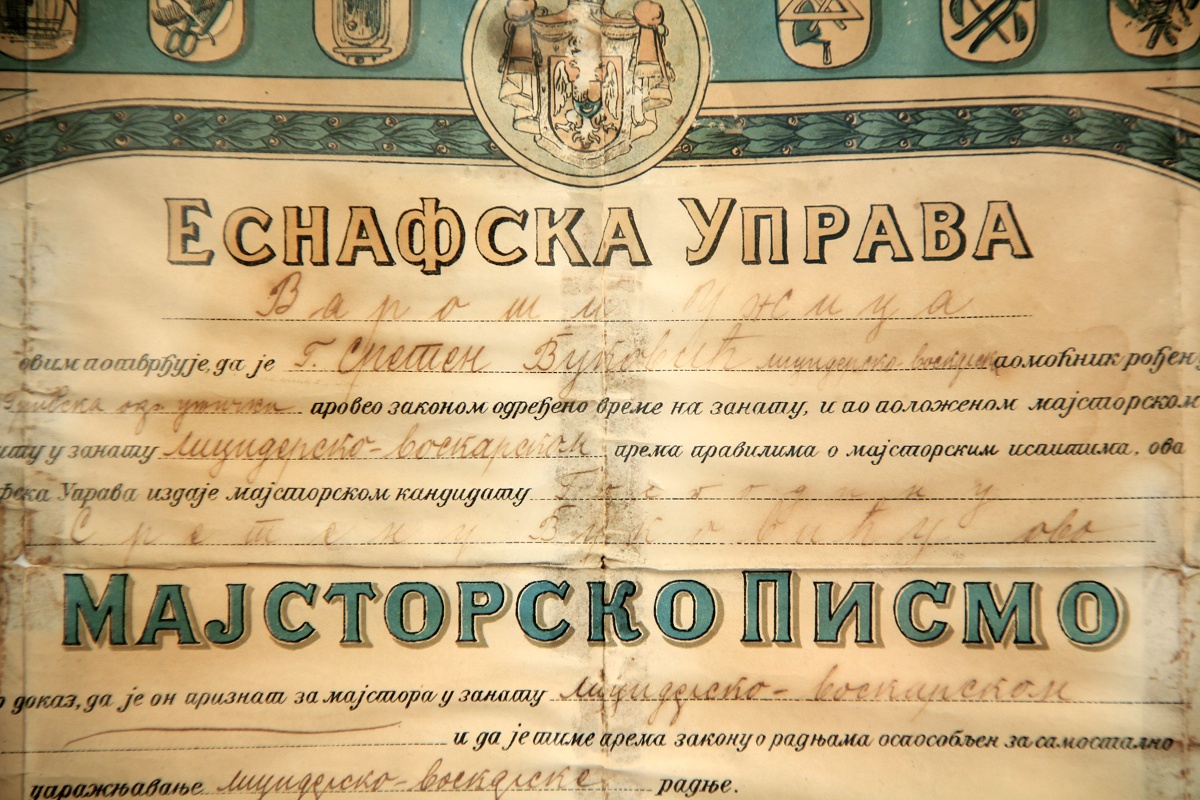 ЕСНАФСКА УПРАВА
Вароши Ужица
овим потврђује, да је Г. Сретен Вуковић лицидерско-воскарски помоћник рођен у
провео законом одређено време на занату, и по положеном мајсторском
у занату лицидерско-воскарском према правилима о мајсторским испитима, ова
Управа издаје мајсторском кандидату Господину
Сретену Вуковићу ово
МАЈСТОРСКО ПИСМО
доказ, да је он признат за мајстора у занату лицидерско-воскарском
и да је тиме према закону о радњама оспособљен за самостално
лицидерско-воскарске радње.